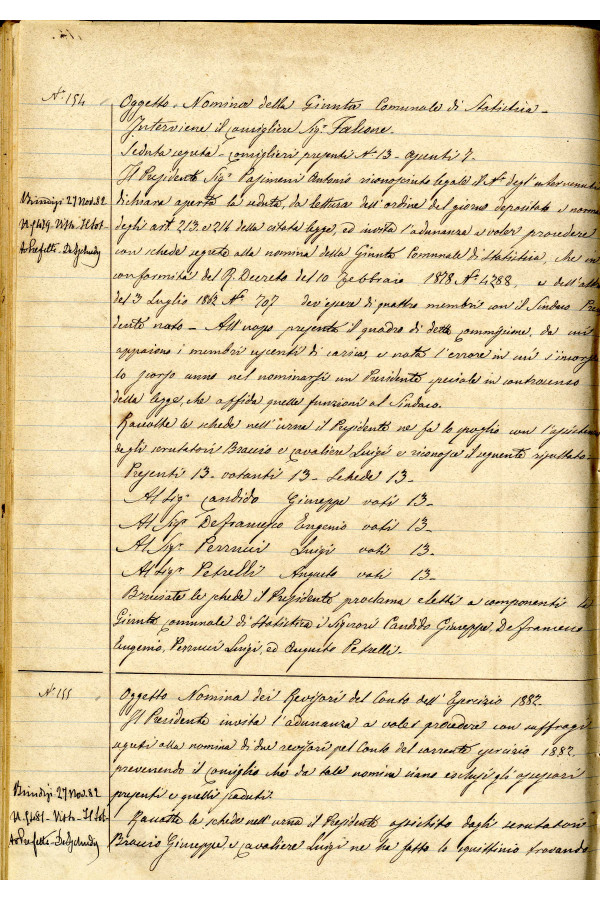 N. 154
Oggetto. Nomina della Giunta Comunale di Statistica -
Interviene il Consigliere Sig. Falcone.
Seduta segreta - Consiglieri presenti N. 13 - assenti 7.
Il Presidente Sig. Pasimeni Antonio riconosciuto legale il N. degl'intervenuti
dichiara aperta la seduta, dà lettura dell'ordine del giorno depositato a norma
degli art. 213 e 214 della citata legge, ed invita l'adunanza a voler procedere
con schede segrete alla nomina della Giunta Comunale di Statistica, che in
conformità del R. Decreto del 10 Febbraio 1878 N. 4288, e dell'altro
del 3 Luglio 1862 N. 707 dev'essere di quattro membri con il Sindaco Presi
dente nato - All'uopo presenta il quadro di detta Commissione, da cui
appaiono i membri uscenti di carica, e nota l'errore in cui s'incorse
lo scorso anno nel nominarsi un Presidente speciale in controsenso
della legge, che affida quelle funzioni al Sindaco.
Raccolte le schede nell'urna il Presidente ne fa lo spoglio con l'assistenza
degli scrutatori Braccio e Cavaliere Luigi e riconosce il seguente risultato:
Presenti 13 - votanti 13 - Schede 13 -
Al Sig. Candido Giuseppe voti 13 -
Al Sig. Defrancesco Eugenio voti 13 -
Al Sig. Perrucci Luigi voti 13 -
Al Sig. Petrelli Augusto voti 13 -
Bruciate le schede il Presidente proclama eletti a componenti la
Giunta Comunale di Statistica i Signori Candido Giuseppe, Defrancesco
Eugenio, Perrucci Luigi, ed Augusto Petrelli.
Brindisi 27 Nov. 82
Visto - Il Sot
to Prefetto -
N. 155
Oggetto Nomina dei Revisori del Conto dell'Esercizio 1882.
Il Presidente invita l'adunanza a voler procedere con suffragi
segreti alla nomina di due revisori pel Conto del corrente esercizio 1882,
prevenendo il Consiglio che da tale nomina siano esclusi gli assessori
presenti e quelli scaduti.
Raccolte le schede nell'urna il Presidente assistito dagli scrutatori
Braccio Giuseppe e Cavaliere Luigi ne ha fatto lo squittinio trovando
Brindisi 27 Nov. 82
Visto - Il Sot
to Prefetto -